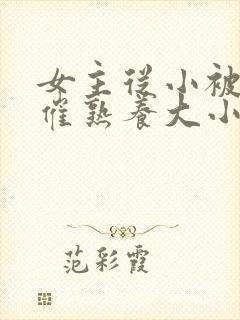 女主从小被
催熟养大小
范彩霞